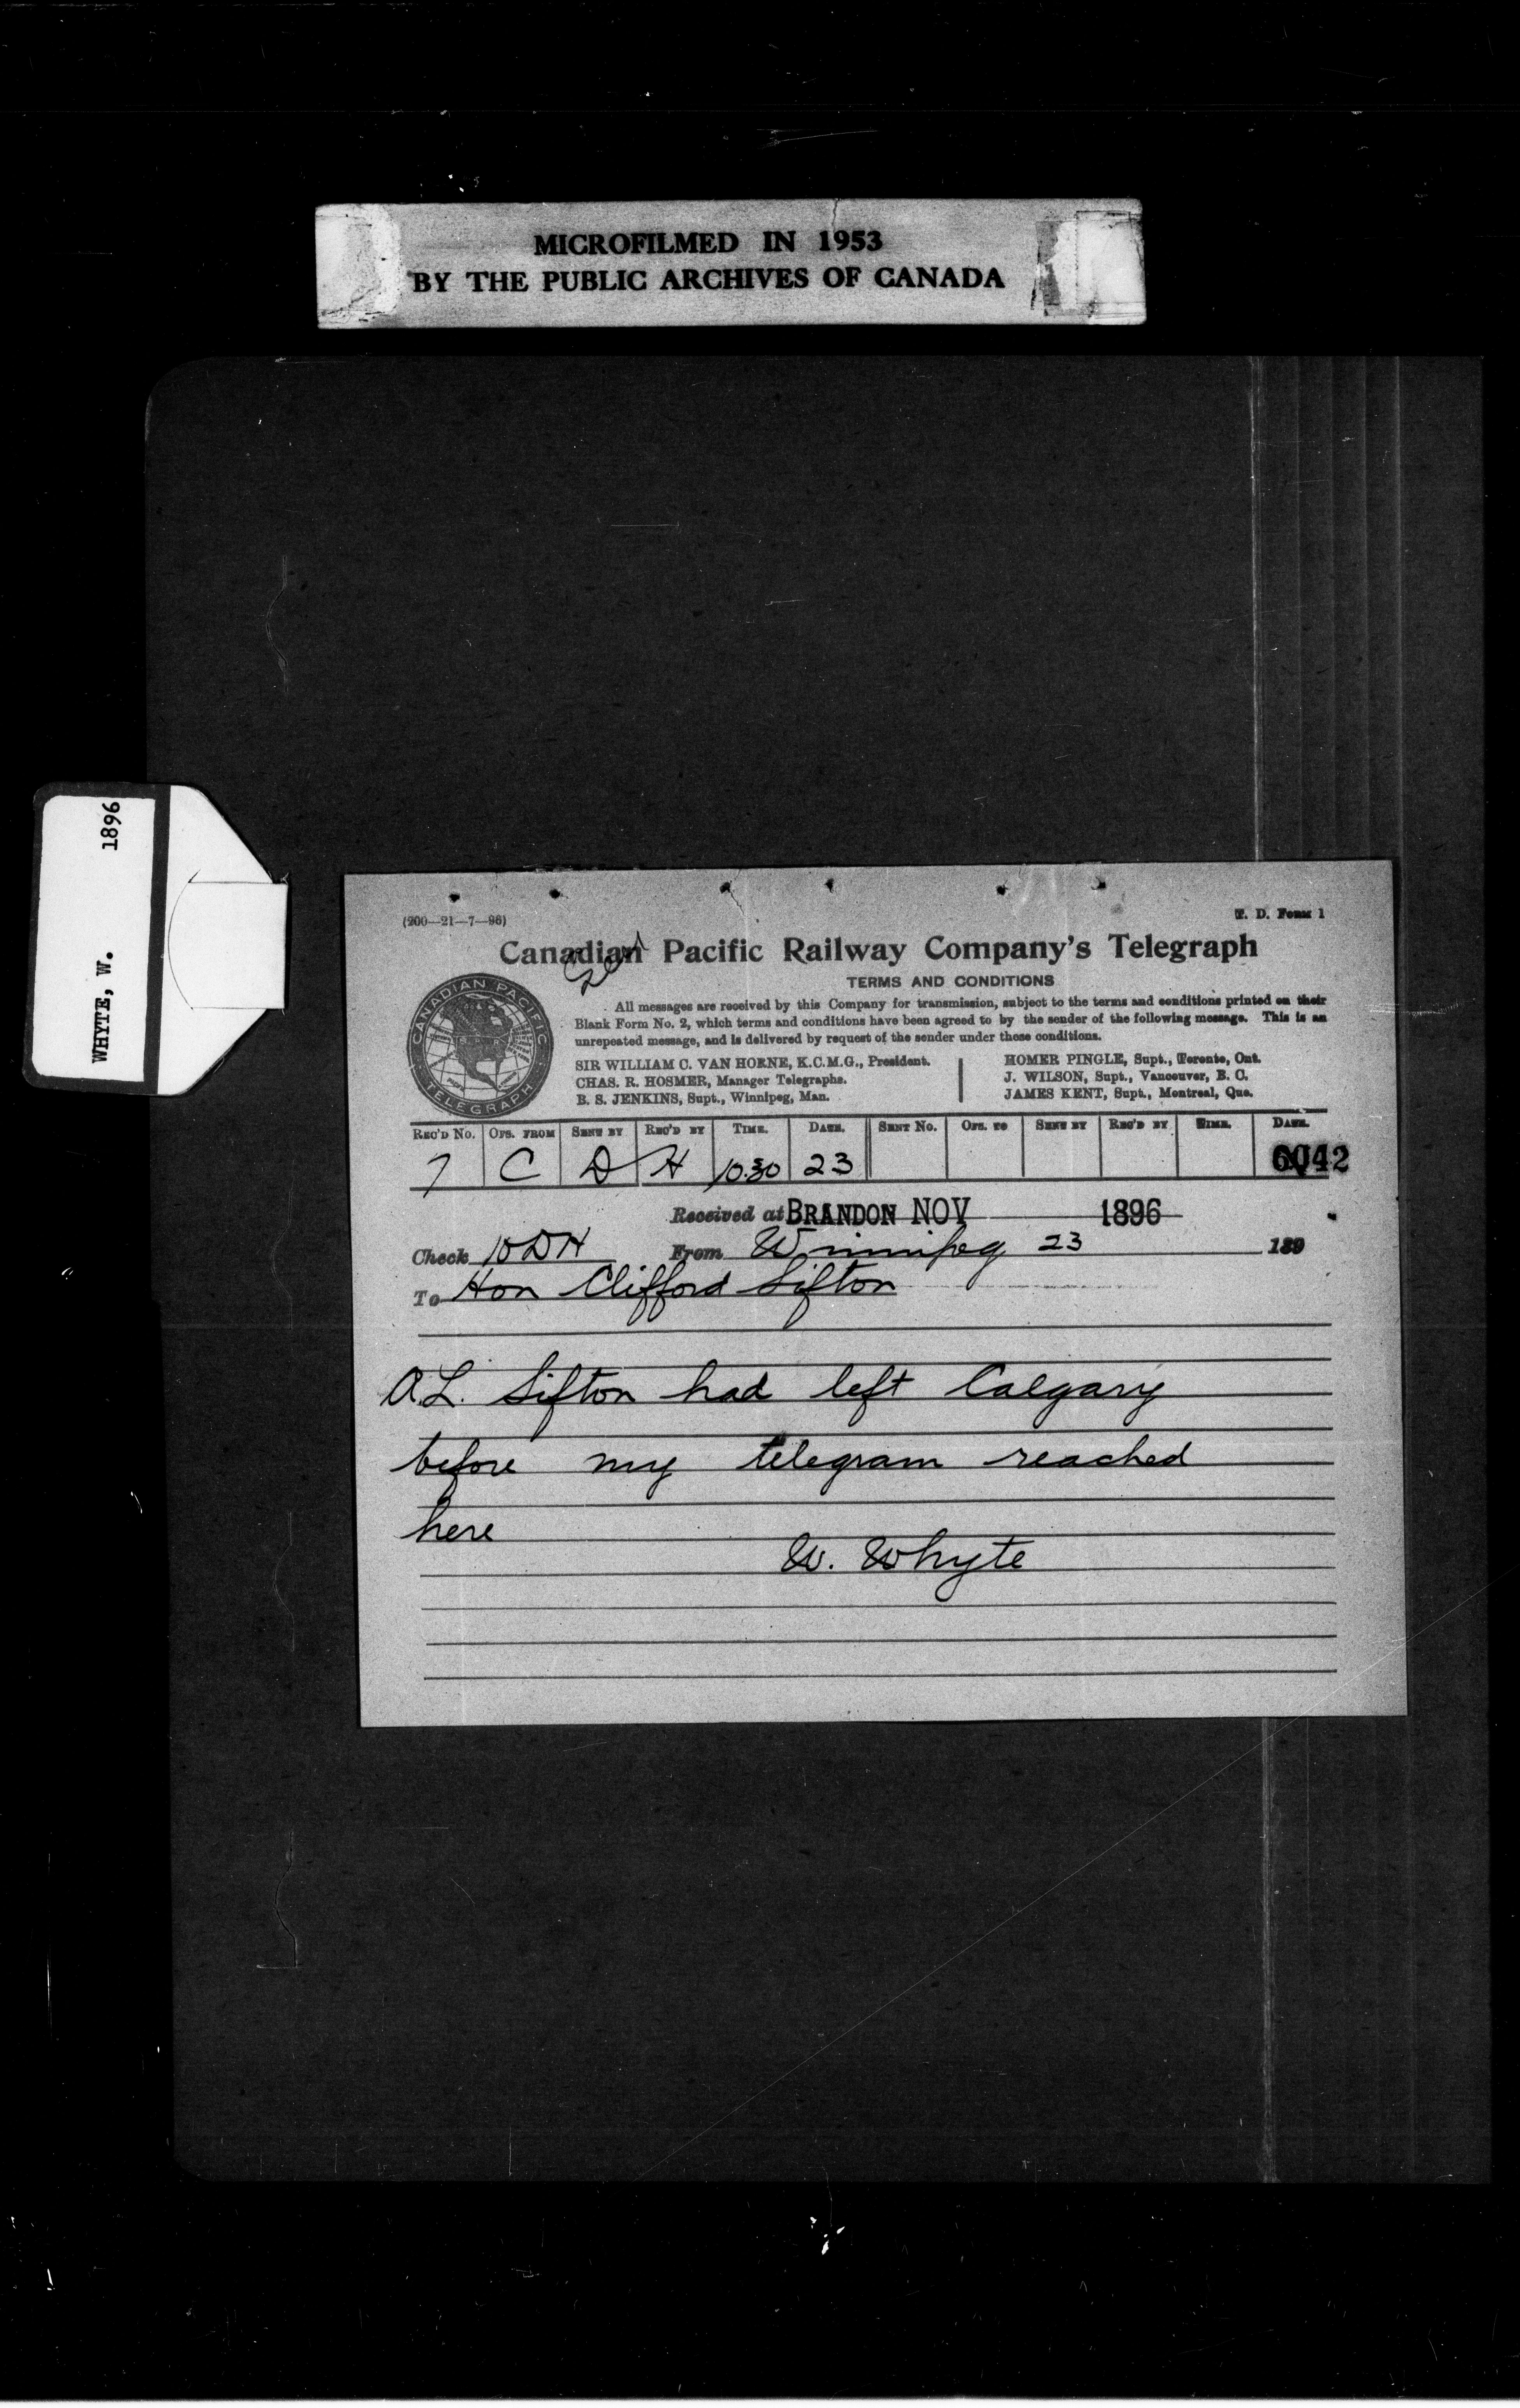 MICROFILMED IN 1953
BY THE PUBLIC ARCHIVES OF CANADA
WHYTE, W. 1896
(200—21—7—96) T. D. Form 1
Canadian Pacific Railway Company's Telegraph
TERMS AND CONDITIONS
All messages are received by this Company for transmission, subject to the terms and conditions printed on their
Blank Form No. 2, which terms and conditions have been agreed to by the sender of the following message. This is an
unrepeated message, and is delivered by request of the sender under these conditions.
SIR WILLIAM C. VAN HORNE, K.C.M.G., President.
CHAS. R. HOSMER, Manager Telegraphs.
B. S. JENKINS, Supt., Winnipeg, Man.
HOMER PINGLE, Supt., Toronto, Ont.
J. WILSON, Supt., Vancouver, B. C.
JAMES KENT, Supt., Montreal, Que.
CANADIAN PACIFIC
TELEGRAPH
REC'D No. OFS. FROM SENT BY REC'D BY TIME. DATE. SENT No. OFS. TO SENT BY REC'D BY TIME. DATE.
7 C D H 10.30 23 6042
Received at BRANDON NOV 1896
Check 10 DH From Winnipeg 23 189
To Hon Clifford Sifton
A.L. Sifton had left Calgary
before my telegram reached
here
W. Whyte